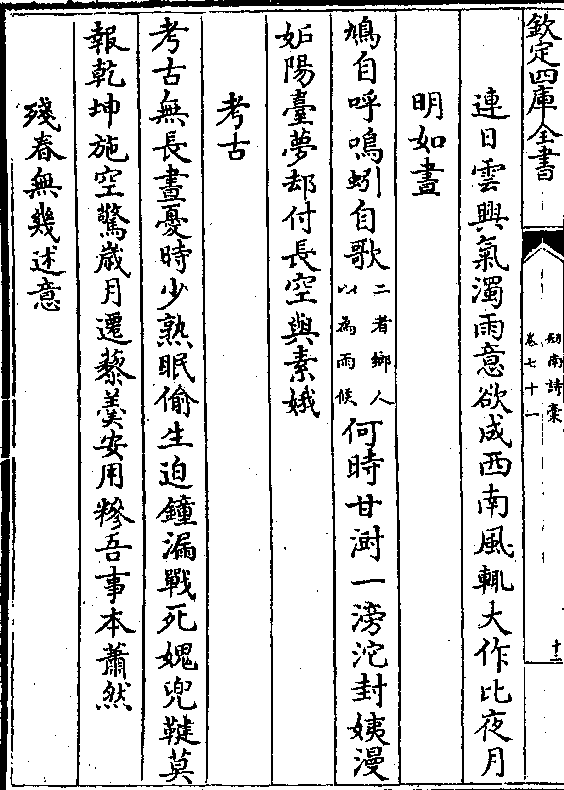 欽定四庫全書
劍南詩稾
卷七十一
十二
連日雲興氣濁雨意欲成西南風輒大作比夜月
明如晝
鳩自呼鳴蚓自歌二者鄉人以為雨候何時甘澍一滂沱封姨漫
妬陽臺夢却付長空與素娥
考古
考古無長晝憂時少熟眠偷生迫鐘漏戰死媿兜鞬莫
報乾坤施空驚歲月遷藜羮安用糝吾事本蕭然
殘春無幾述意